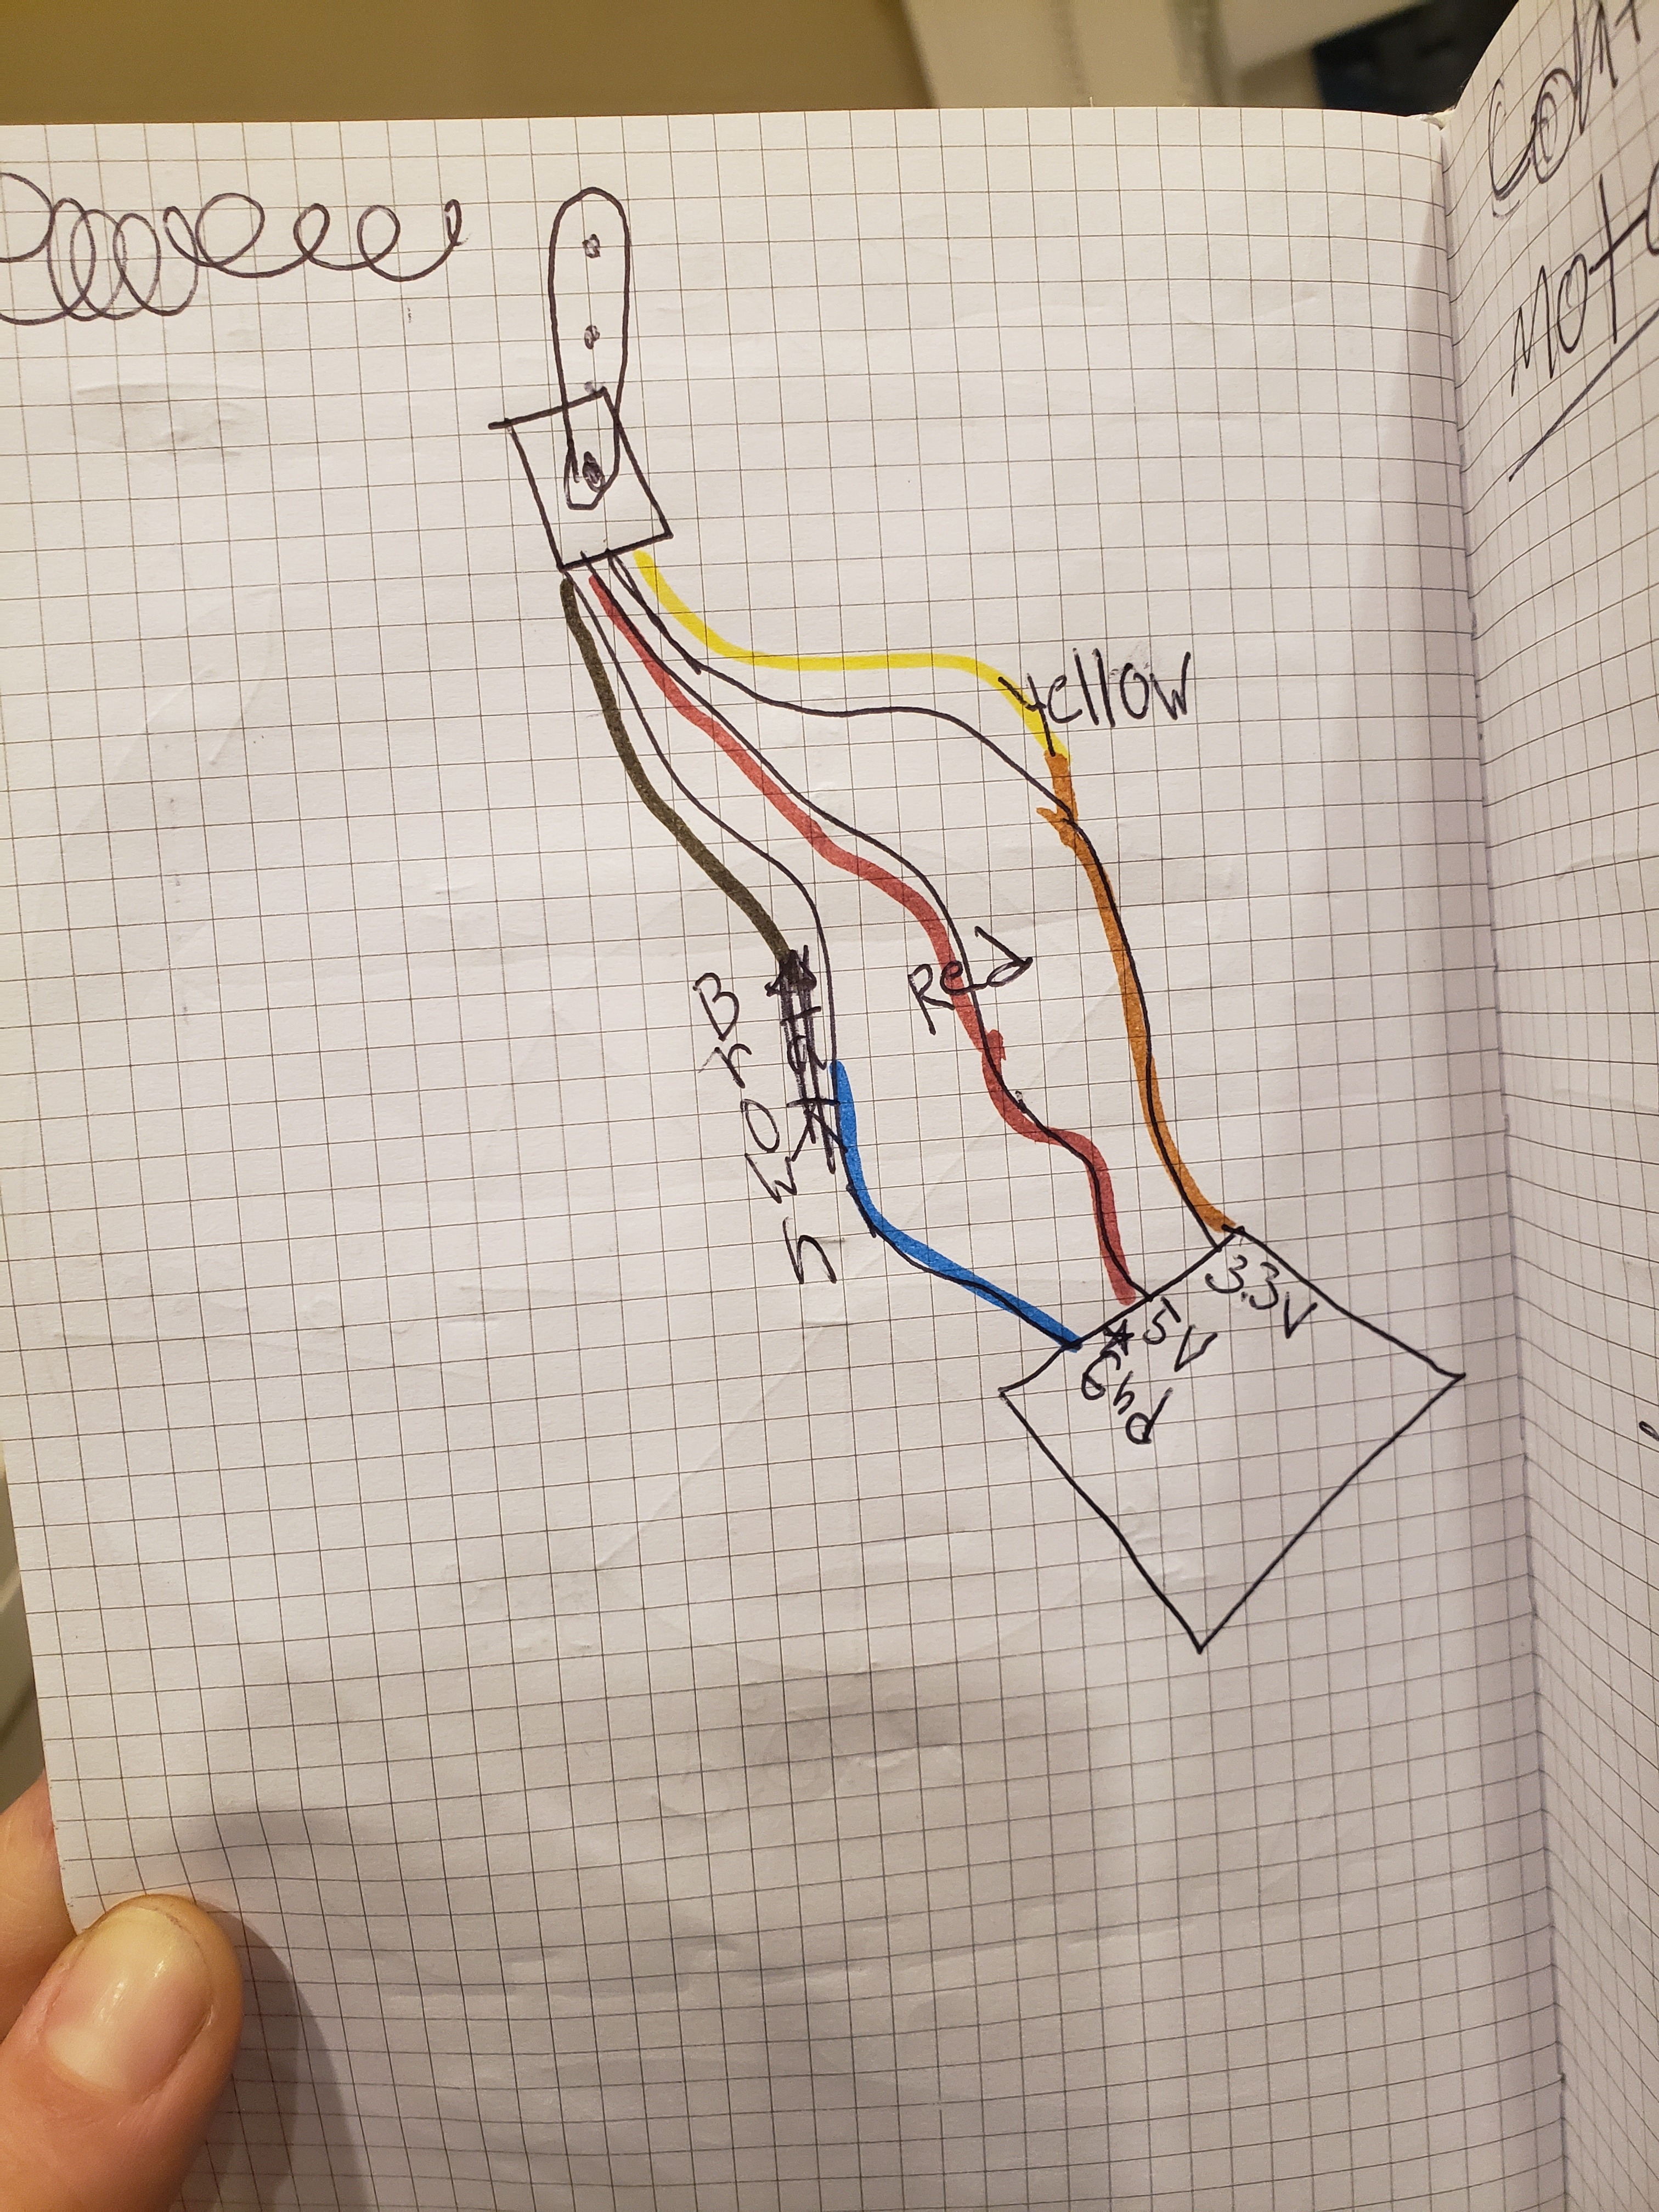 Cont
Mot
Yellow
Red
Brown
3.3V
*5V
Gnd